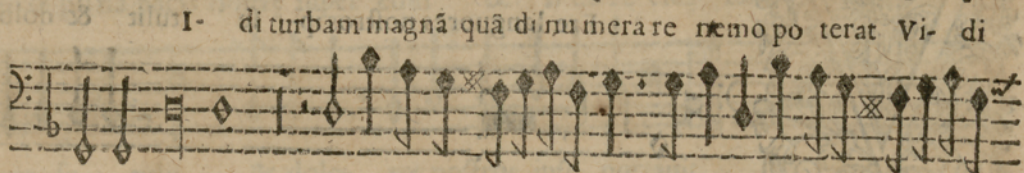 I- di turbam magnã quã dinumerare nemo poterat Vi- di